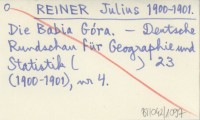 REINER Julius 1900-1901.
Die Babia Góra. - Deutsche
Rundschau für Geographie und
Statistik ( ) 23
(1900-1901), nr 4.